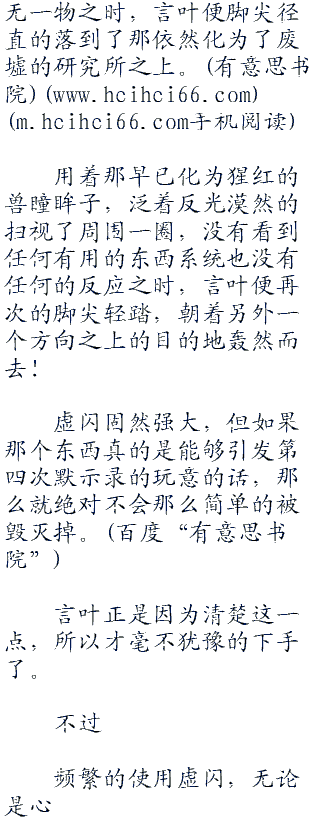 无一物之时，言叶便脚尖径
直的落到了那依然化为了废
墟的研究所之上。(有意思书
院)(www.hcihci66.com)
(m.hcihci66.com手机阅读)
用着那早已化为猩红的
兽瞳眸子，泛着反光漠然的
扫视了周围一圈，没有看到
任何有用的东西系统也没有
任何的反应之时，言叶便再
次的脚尖轻踏，朝着另外一
个方向之上的目的地轰然而
去！
虚闪固然强大，但如果
那个东西真的是能够引发第
四次默示录的玩意的话，那
么就绝对不会那么简单的被
毁灭掉。(百度“有意思书
院”)
言叶正是因为清楚这一
点，所以才毫不犹豫的下手
了。
不过
频繁的使用虚闪，无论
是心